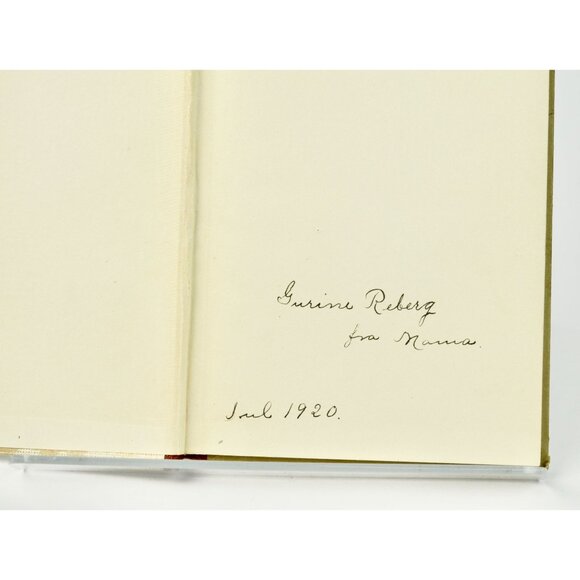 Gurine Reberg
fra Mama.
Jul 1920.